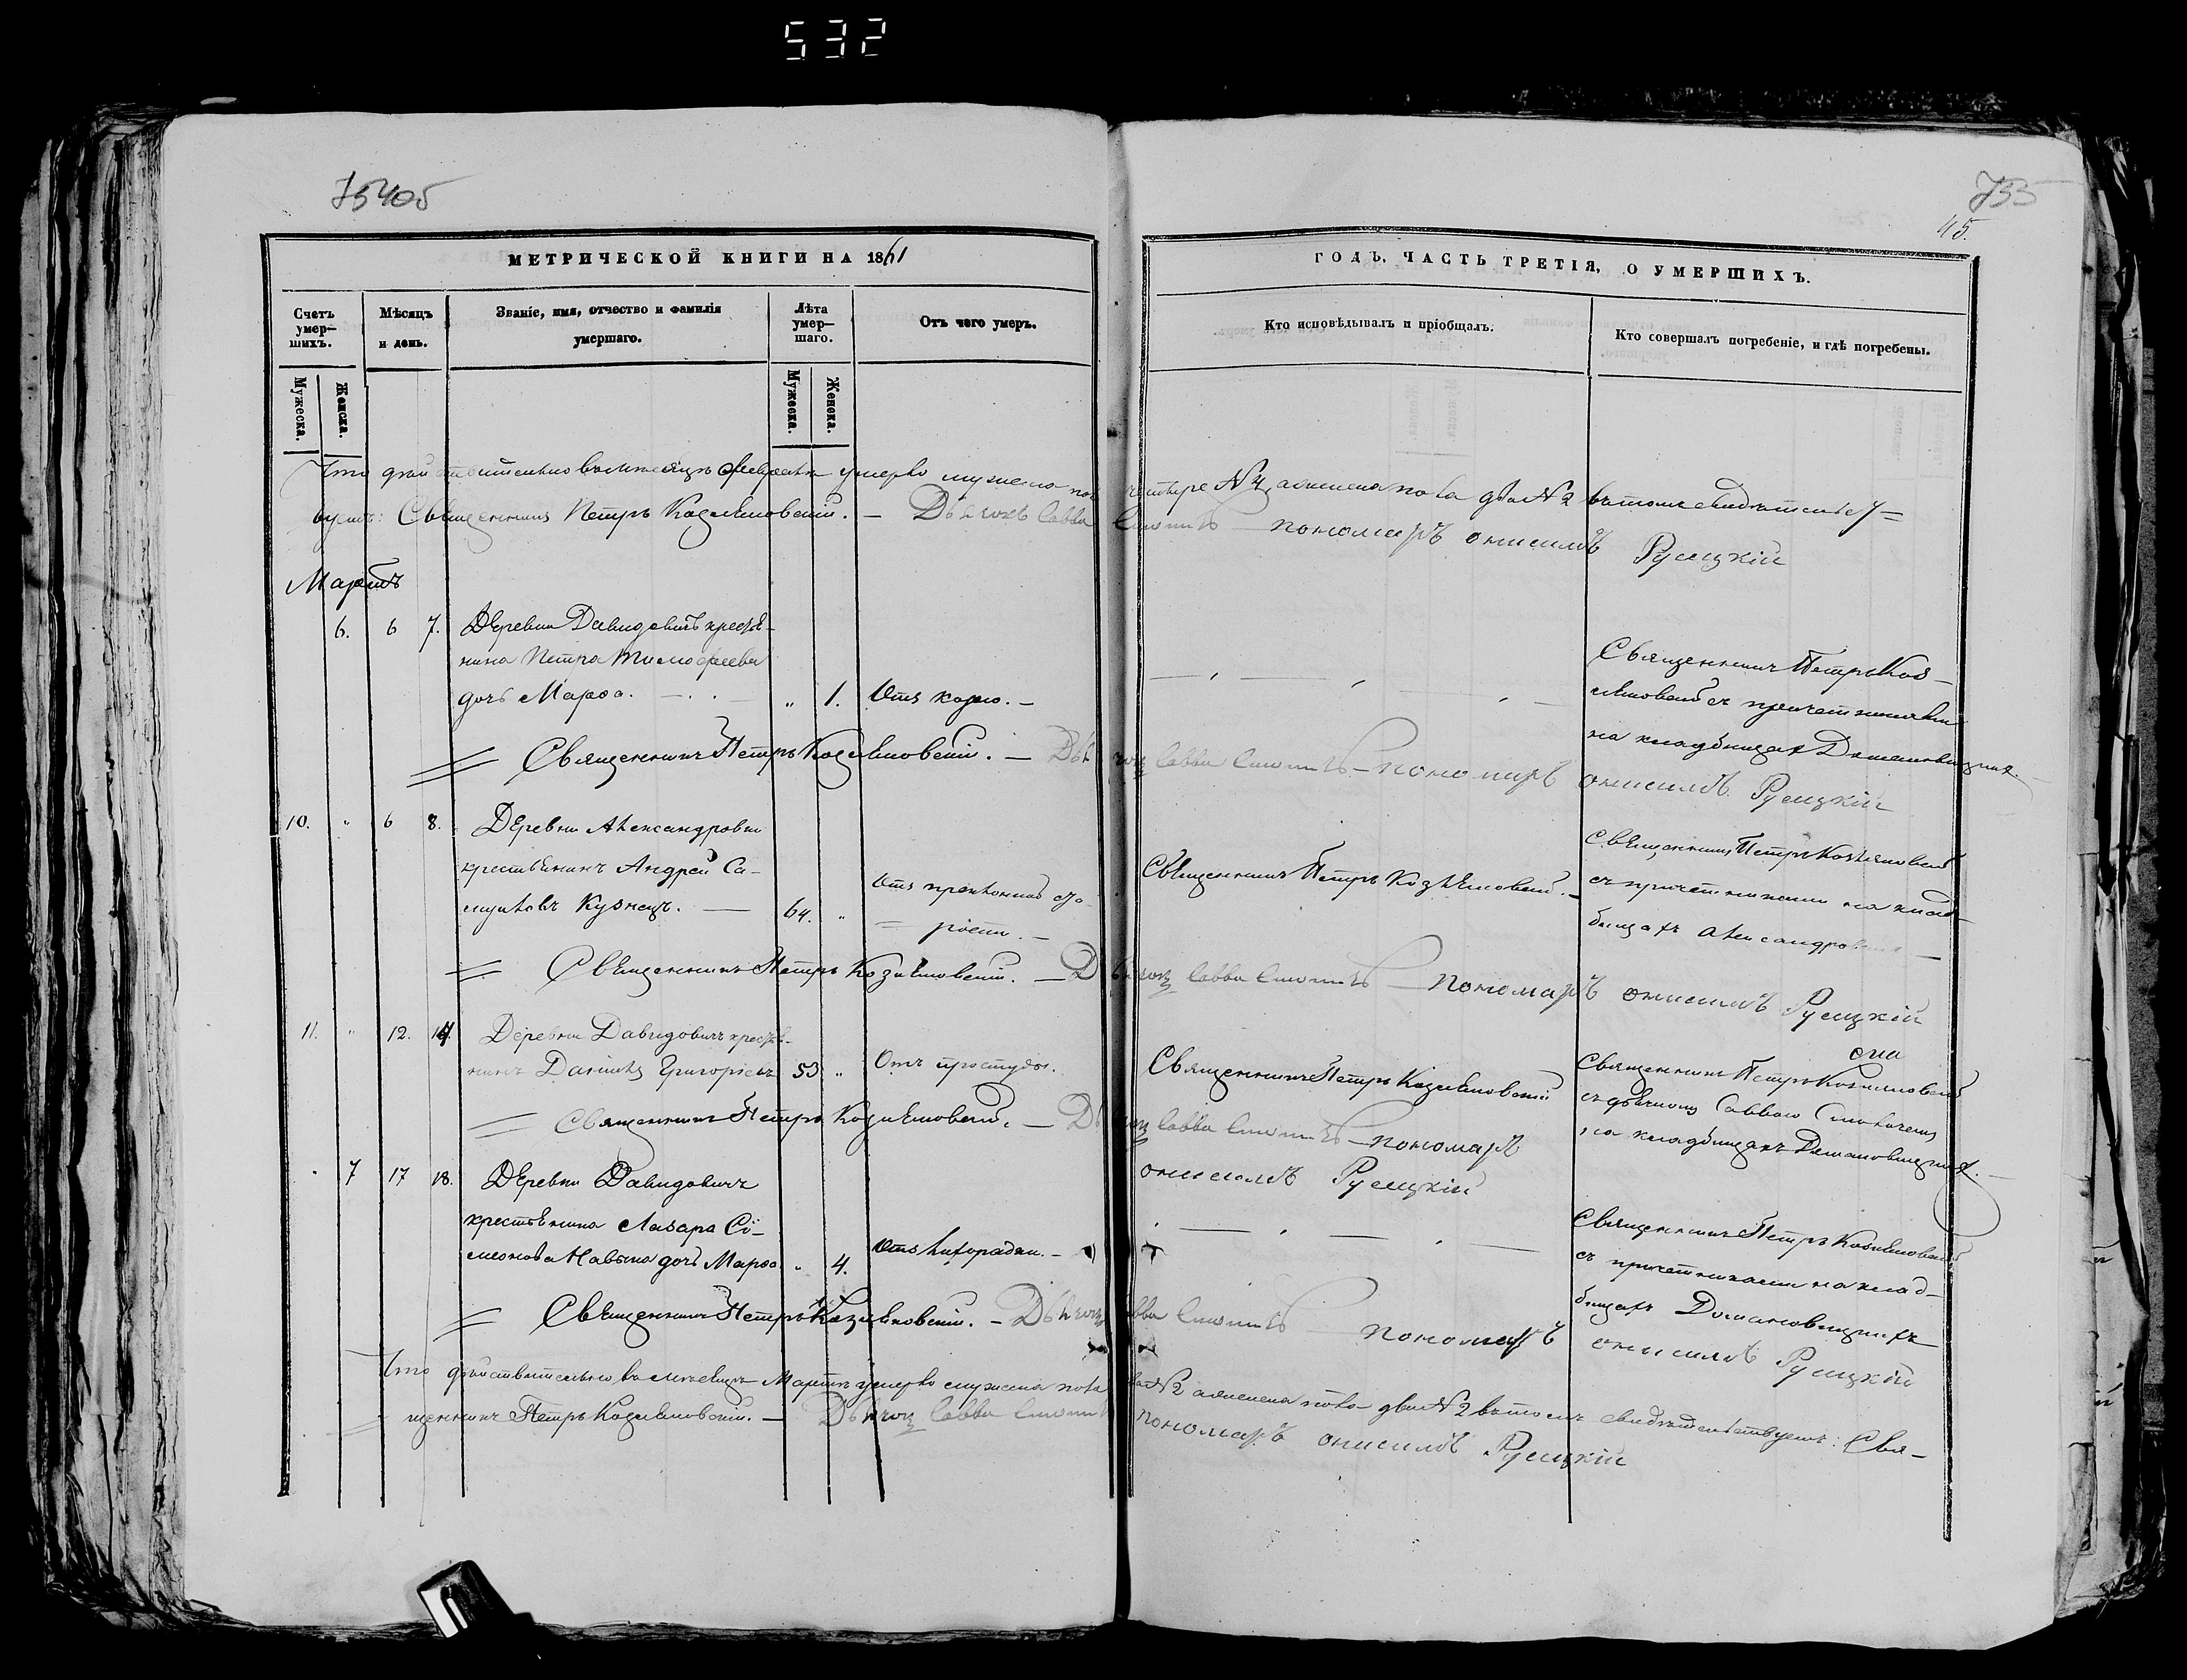 532
754об
755
45.
МЕТРИЧЕСКОЙ КНИГИ НА 1861
ГОДЪ, ЧАСТЬ ТРЕТІЯ, О УМЕРШИХЪ.
Счетъ умер-шихъ.
Мѣсяцъ и день.
Званіе, имя, отчество и фамилія умершаго.
Лѣта умер-шаго.
Отъ чего умеръ.
Кто исповѣдывалъ и пріобщалъ.
Кто совершалъ погребеніе, и гдѣ погребены.
Мужеска.
Женска.
Мужеска.
Женска.
Что дѣйствительно въ мѣсяцѣ Февралѣ умерло мужеска пола четыре № 4, а женска пола два № 2 въ томъ свидѣтельст=
вуемъ: Священникъ Петръ Козляковскій. — Дьячокъ Савва пономаръ онисимъ Руецкій
Мартъ
6. 6 7. Деревни Давидовичъ крестья-
нина Петра Тимофеева
дочь Марѳа. — „ 1. Отъ корю. —
Священникъ Петръ Коз-
ляковскій съ причетниками
на кладбищахъ
Священникъ Петръ Козляковскій. — Дьячокъ Савва — пономаръ онисимъ Руецкій
10. „ 6 8. Деревни Александровки
крестьянинъ Андрей Са-
муиловъ Кузнецъ. — 64. „
Отъ преклонной ста-
рости. —
Священникъ Петръ Козляковскій. —
Священникъ Петръ Козляковскій
съ причетниками на клад-
бищахъ Александров
Священникъ Петръ Козляковскій. — Дьячокъ Савва — пономаръ онисимъ Руецкій
11. „ 12. 14. Деревни Давидовичъ крестья-
нинъ Даніилъ Григорьевъ 53 „ Отъ простуды.
Священникъ Петръ Козляковскій
Священникъ Петръ Козляковскій
съ дьячкомъ Саввою
на кладбищахъ
Священникъ Петръ Козляковскій. — Дьячокъ Савва — пономаръ
онисимъ Руецкій
7 17 18. Деревни Давидовичъ
крестьянина Лазара Си-
меонова дочь Марѳа „ 4. Отъ лихорадки. —
Священникъ Петръ Козляковскій
съ причетниками на клад-
бищахъ Домановицкихъ
Священникъ Петръ Козляковскій. — Дьячокъ Савва — пономаръ онисимъ Руецкій
Что дѣйствительно въ мѣсяцѣ Мартѣ умерло мужеска пола два № 2 а женска пола два № 2 въ томъ свидѣтельствуемъ: Свя-
щенникъ Петръ Козляковскій. — Дьячокъ Савва пономаръ онисимъ Руецкій